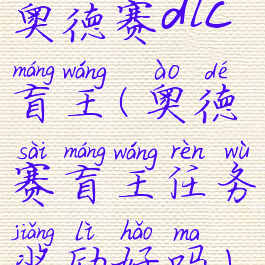 奥德赛dlc
máng wáng ào dé
盲王(奥德
sài máng wáng rèn wù
赛盲王任务
jiǎng lì hǎo ma
奖励好吗)